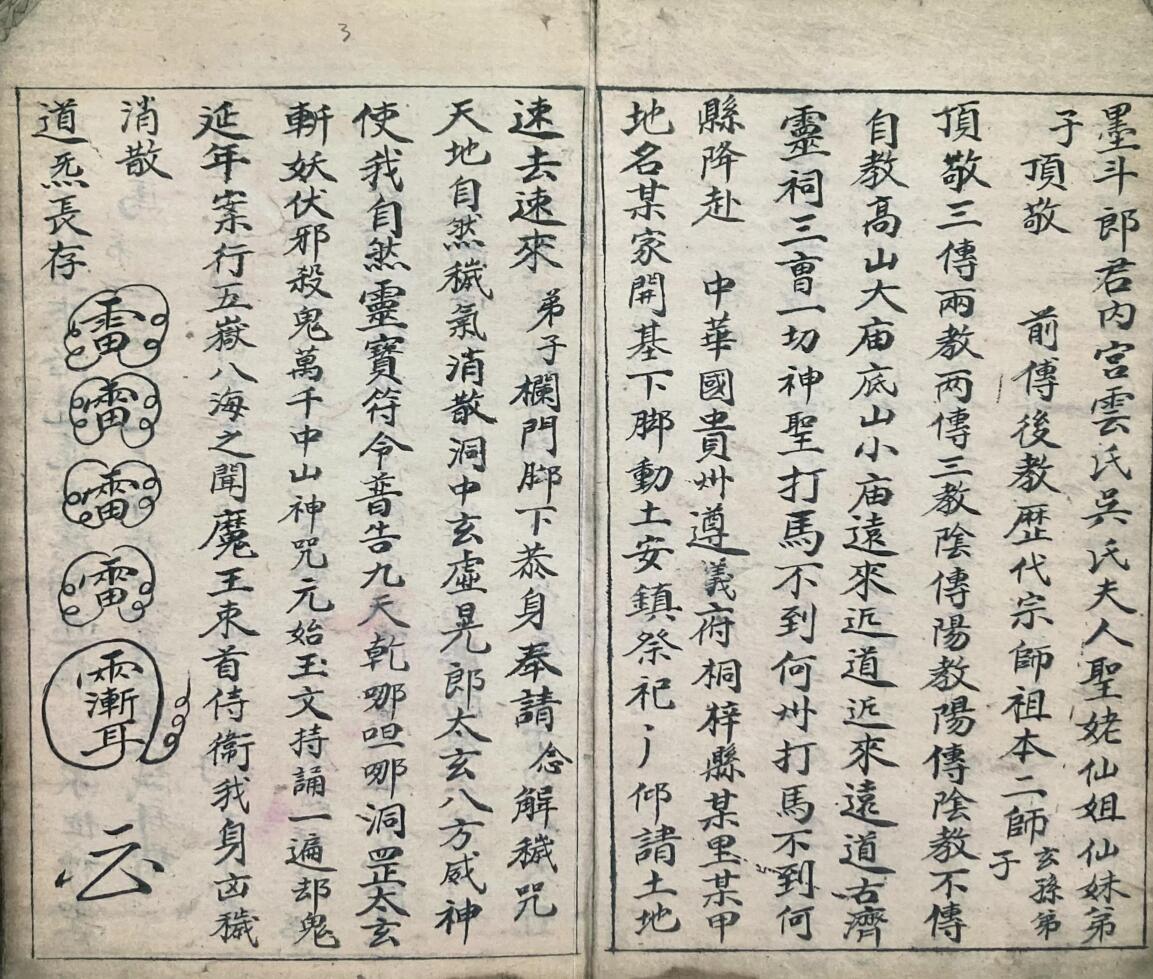 墨斗郎君内宫雲氏吳氏夫人聖姥仙姐仙妹弟
子頂敬 前傳後教歷代宗師祖本二師玄孫弟子
頂敬三傳兩教两傳三教陰傳陽教陽傳陰教不傳
自教高山大庙底山小庙遠來近道近來遠道古濟
靈祠三曺一切神聖打馬不到何州打馬不到何
縣降赴 中華國貴州遵義府桐梓縣某里某甲
地名某家開基下脚動土安鎮祭祀〻仰請土地
速去速來 弟子欄門脚下恭身奉請念解穢咒
天地自然穢氣消散洞中玄虛晃郎太玄八方威神
使我自然靈寶符令普告九天乾哪呾哪洞罡太玄
斬妖伏邪殺鬼萬千中山神咒元始玉文持誦一遍却鬼
延年案行五嶽八海之聞魔王束首侍衛我身凶穢
消散
道炁長存
3